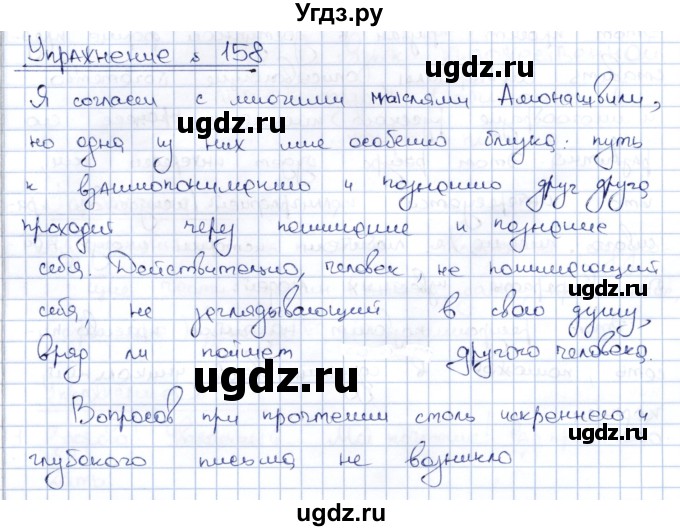 Угдз.ру
Упражнение 158
Я согласен с многими мыслями Амонашвили,
но одна из них мне особенно близка: путь
к взаимопониманию и познанию друг друга
проходит через понимание и познание
себя. Действительно, человек, не понимающий
себя, не заглядывающий в свою душу,
вряд ли поймет другого человека.
Вопросов при прочтении столь искреннего и
глубокого письма не возникло
ugdz.ru
ugdz.ru
ugdz.ru
ugdz.ru
ugdz.ru
ugdz.ru
ugdz.ru